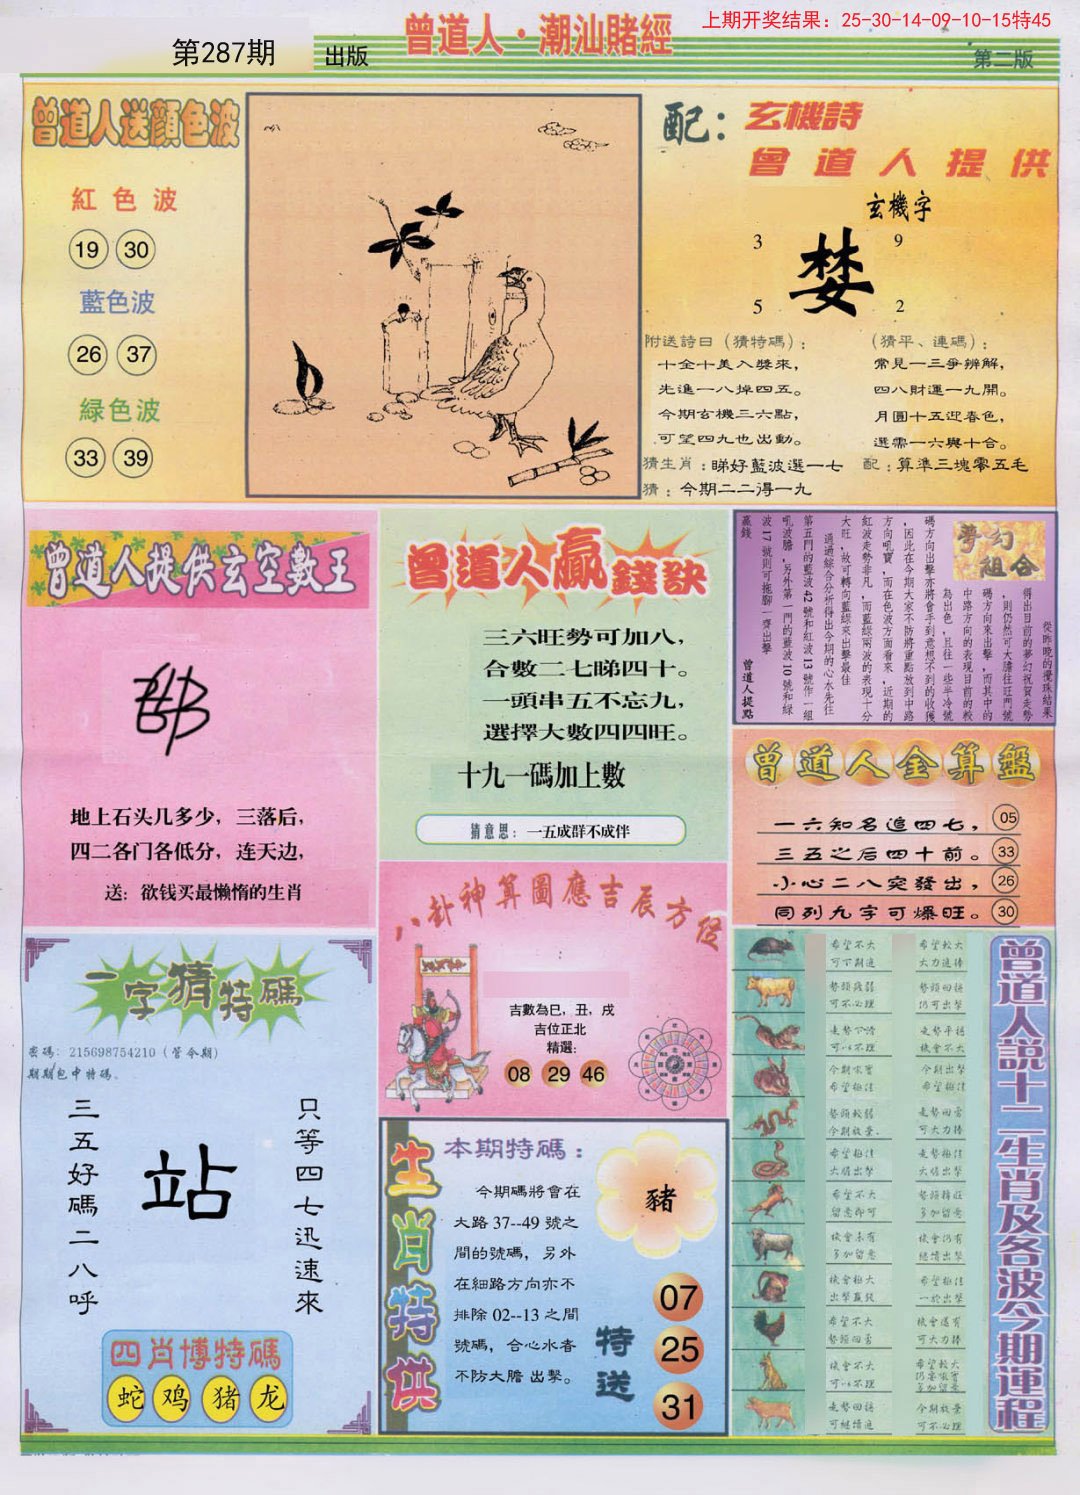 上期开奖结果：25-30-14-09-10-15特45
第287期
出版
曾道人·潮汕賭經
第二版
曾道人送顔色波
紅色波
19 30
藍色波
26 37
緑色波
33 39
配：玄機詩
曾道人提供
玄機字
3 9
婪
5 2
附送詩曰（猜特碼）：
十全十美入獎來，
先進一八掉四五。
今期玄機三六點，
可望四九也出動。
（猜平、連碼）：
常見一三爭辨解，
四八財運一九開。
月圓十五迎春色，
選需一六與十合。
猜生肖：睇好藍波選一七
配：算準三塊零五毛
猜：今期二二得一九
曾道人提供玄空數王
地上石头几多少，三落后，
四二各门各低分，连天边，
送：欲钱买最懒惰的生肖
曾道人贏錢訣
三六旺勢可加八，
合數二七睇四十。
一頭串五不忘九，
選擇大數四四旺。
十九一碼加上數
猜意思：一五成群不成伴
夢幻組合
從昨晚的攪珠結果
得出目前的夢幻祝賀走勢
，則仍然可大膽往旺門號
碼方向來出擊，而其中的
中路方向的表現目前的較
為出色，且往一些半冷號
碼方向出擊亦將會手到意想不到的收獲
，因此在今期大家不防將重點放到中路
方向吼寶，而在色波方面看來，近期的
紅波走勢非凡，而藍綠兩波的表現十分
大旺，故可轉向藍綠來出擊最佳
通過綜合分析得出今期的心水先往
第五門的藍波42號和紅波13號作一組
吼波膽，另外第一門的藍波10號和綠
波17號則可拖腳一齊出擊
贏錢
曾道人提點
曾道人全算盤
一六知名追四七， 05
三五之后四十前。 33
小心二八突發出， 26
同列九字可爆旺。 30
八卦神算圖應吉辰方位
吉數為巳，丑，戌
吉位正北
精選：
08 29 46
一字猜特碼
密碼：215698754210（管今期）
期期包中特碼。
三五好碼二八呼
站
只等四七迅速來
四肖博特碼
蛇 鸡 猪 龙
生肖特供
本期特碼：
今期碼將會在
大路37--49號之
間的號碼，另外
在細路方向亦不
排除02--13之間
號碼，合心水者
不防大膽出擊。
豬
特送
07
25
31
曾道人說十二生肖及各波今期運程
希望不大
希望較大
大力追捧
可不必理
仍可出擊
走勢平穩
機會不大
今期出擊
希望極佳
今期放量
可大力捧
走勢極佳
大膽出擊
希望不大
留意即可
多加留意
機會未有
多加留意
機會仍有
繼續出擊
機會極大
出擊贏錢
希望極佳
一於出擊
希望不大
機會還有
可大力捧
機會不大
希望較大
多加留意
走勢回穩
可繼續追
今期放量
可不必理